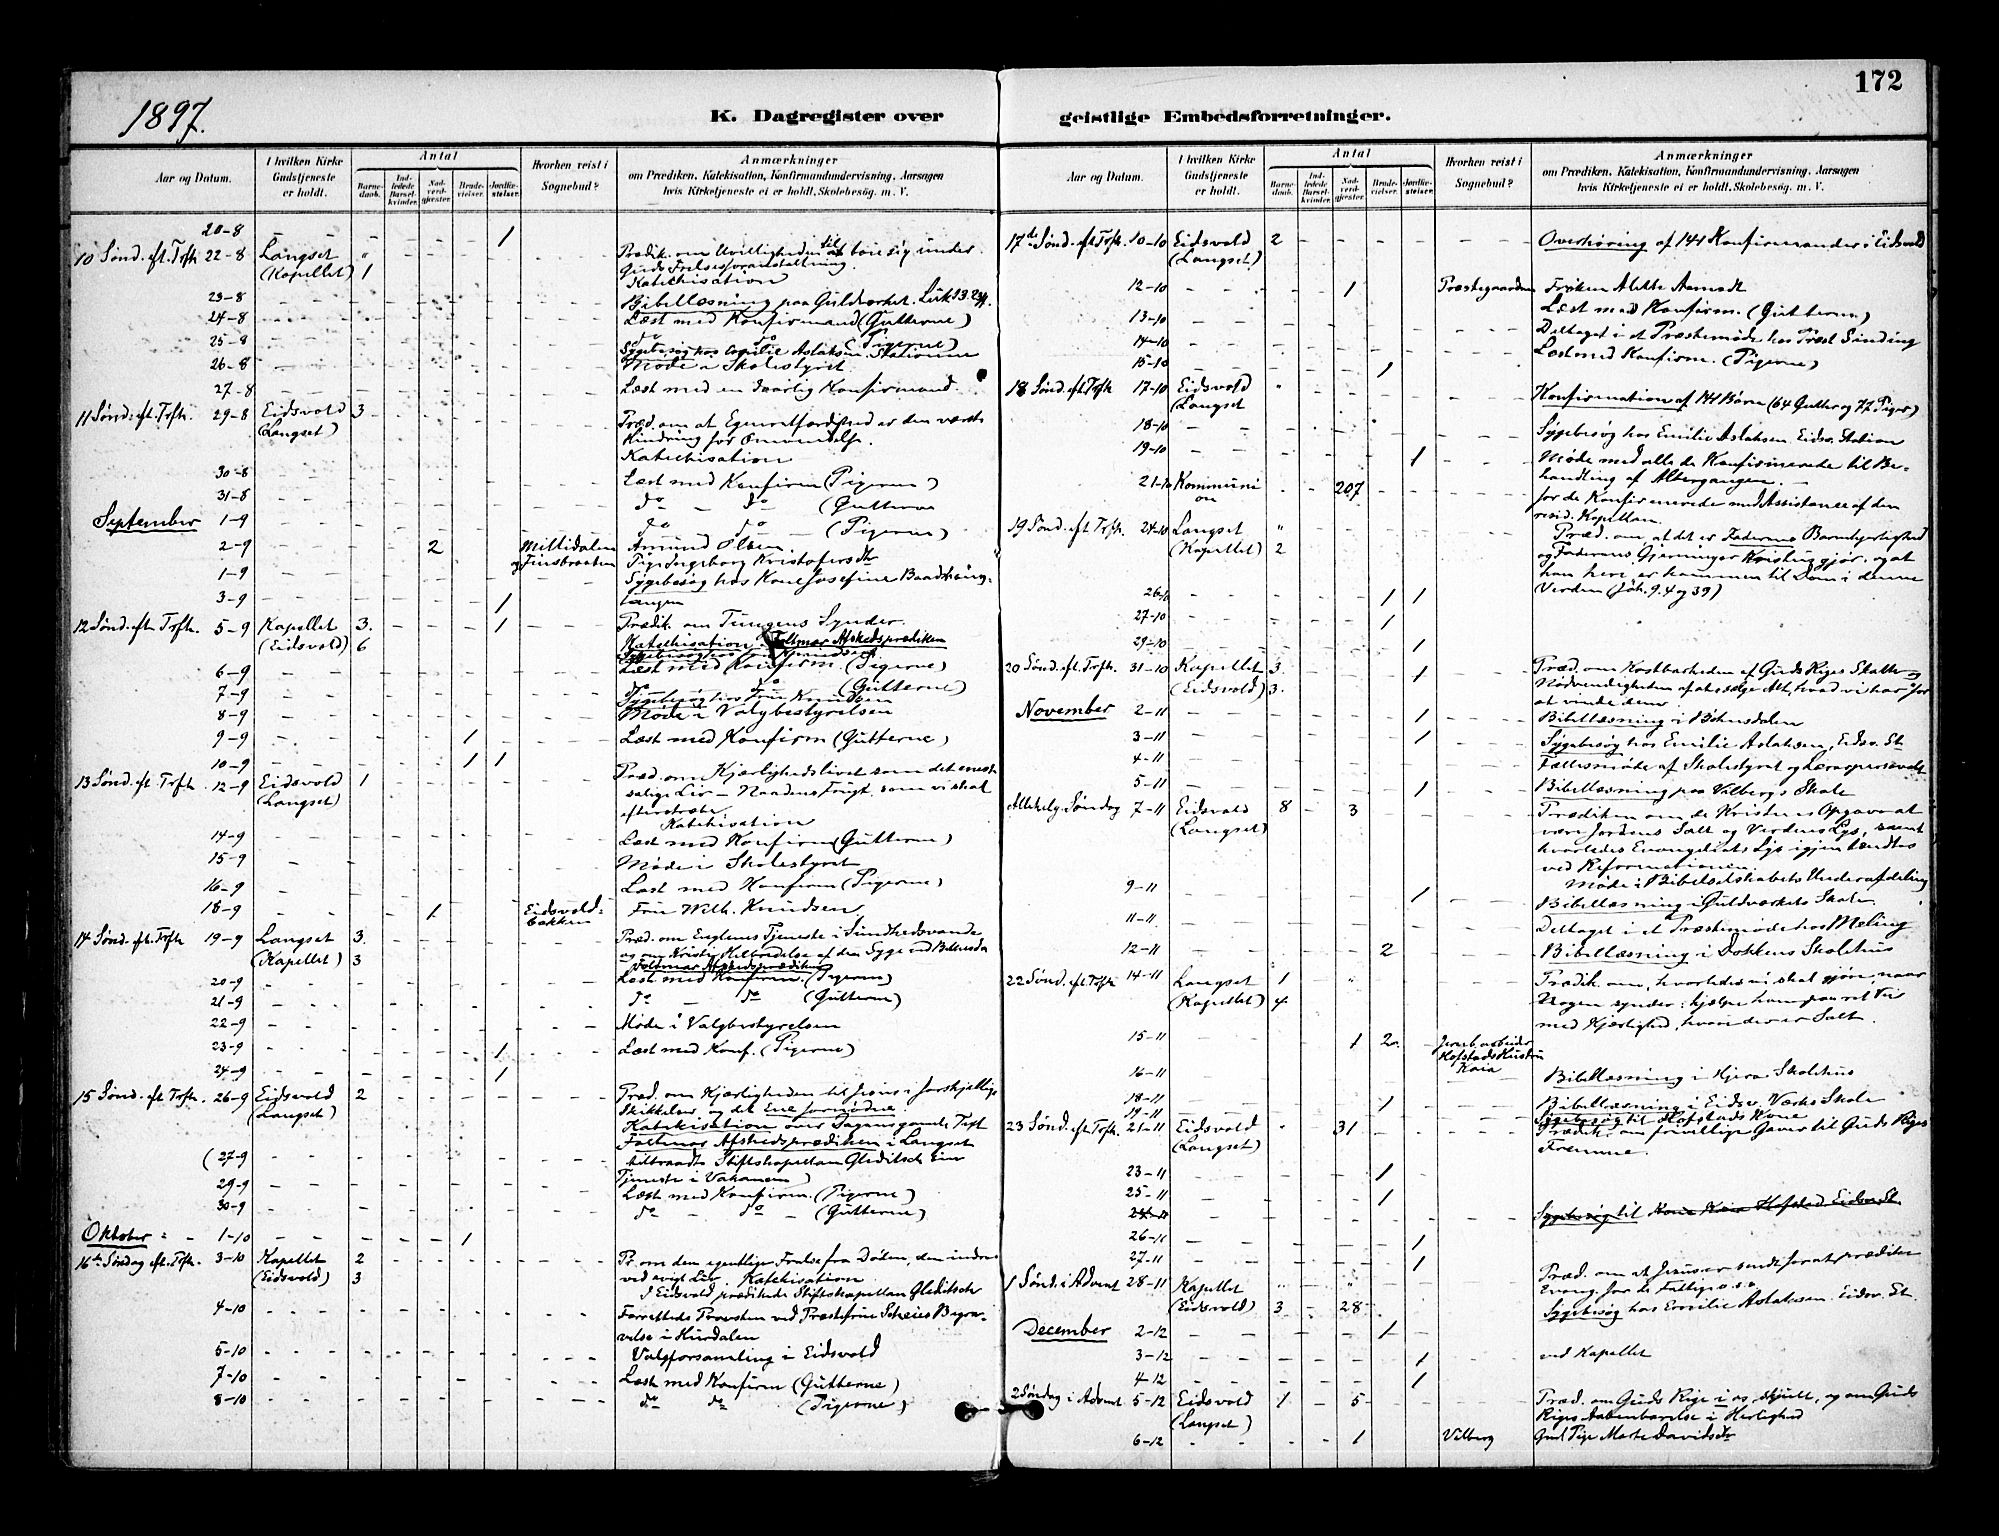 172
1897.
K. Dagregister over geistlige Embedsforretninger.
Aar og Datum.
I hvilken Kirke Gudstjeneste er holdt.
Antal
Barne-daab.
Ind-ledede Barsel-kvinder.
Nad-verd-gjester.
Brude-vielser.
Jordfæ-stelser.
Hvorhen reist i Sognebud?
Anmærkninger
om Prædiken, Katekisation, Konfirmandundervisning, Aarsagen
hvis Kirketjeneste ei er holdt, Skolebesøg. m. V.
20-8 - - - - - 1
10 Sønd. eft. Trftr. 22-8 Langset " Prædik. om Uvilligheden til at bøie sig under
(Kapellet) 1 Guds Frelsesforanstaltning.
Katekisation
23-8 Bibellæsning paa Guldverket. Luk 13.24ff.
24-8 Læst med Konfirmand (Gutterne)
25-8 do do (Pigerne)
Sygebesøg hos Emilie Aslaksen Stationen
26-8 Møde i Skolestyret
27-8 Læst med en daarlig Konfirmand
11 Sønd. eft. Trftr. 29-8 Eidsvold 3 Præd. om at Egenretfærdighed er den værste
(Langset) Hindring for Omvendelse.
Katekisation
30-8 Læst med Konfirm (Pigerne)
31-8 do - do (Gutterne
September 1-9 do do - (Pigerne)
2-9 2 Amund Olsen
og Finsbraaten Pige Ingeborg Kristofersdtr
1-9 Sygebesøg hos Kone Josefine
3-9 1
12 Sønd. eft. Trftr. 5-9 Kapellet 3. 1 Prædik. om Tungens Synder.
(Eidsvold) 6 Katekisation. Foltmar Afskedsprædiken
6-9 Læst med Konfirm. (Pigerne)
7-9 do do (Gutterne)
Sygebesøg hos Fru Knudsen
8-9 Møde i Valgbestyrelsen
9-9 1 Læst med Konfirm (Gutterne)
10-9 1 1
13 Sønd. eft. Trftr. 12-9 Eidsvold 1 Præd. om Kjærlighedslivet som det eneste
(Langset) salige Liv - Naadens Frugt, som vi skal
efterstræbe
Katekisation
14-9 Læst med Konfirm (Gutterne)
15-9 Møde i Skolestyret
16-9 Læst med Konfirm (Pigerne)
18-9 1 Eidsvold-bakken Fru Wilh. Knudsen
14 Sønd. eft. Trftr 19-9 Langset 3. Præd. om Englenes Tjeneste i Sundhedsvande
(Kapellet) 3 og om Kristi Helbredelse af den Syge ved Bethesda
Foltmar Afskedsprædiken
20-9 Læst med Konfirm. (Pigerne)
21-9 do - do (Gutterne)
22-9 Møde i Valgbestyrelsen
23-9 1 Læst med Konf. (Pigerne)
24-9 1
15 Sønd. eft Trftr. 26-9 Eidsvold 2 Præd. om Kjærligheden til Jesus i forskjellige
(Langset) Skikkelser, og det Ene fornødne.
Katekisation over Dagens gamle Text
Foltmar Afskedsprædiken i Langset
(27-9 tiltraadte Stiftskapellan Gleditsch sin
Tjeneste i Vakancen)
29-9 Læst med Konfirm. (Pigerne)
30-9 do - do - (Gutterne)
Oktober 1-10 1
16de Søndag eft. Trftr. 3-10 Kapellet 2 Pr. om den egentlige Frelse fra Døden, den indre
(Eidsvold) 3 ved evigt Liv. Katekisation
I Eidsvold prædikede Stiftskapellan Gleditsch
4-10 Forrettede Provsten ved Præstefrue Scheies Begra-
velse i Hurdalen
5-10 Valgforsamling i Eidsvold
7-10 Læst med Konfirm (Gutterne)
8-10 do do (Pigerne)
Aar og Datum.
I hvilken Kirke Gudstjeneste er holdt.
Antal
Barne-daab.
Ind-ledede Barsel-kvinder.
Nad-verd-gjester.
Brude-vielser.
Jordfæ-stelser.
Hvorhen reist i Sognebud?
Anmærkninger
om Prædiken, Katekisation, Konfirmandundervisning, Aarsagen
hvis Kirketjeneste ei er holdt, Skolebesøg. m. V.
17de Sønd. eft Trftr. 10-10 Eidsvold 2 Overhøring af 141 Konfirmander i Eidsvold
(Langset)
12-10 1 Præstegaarden Frøken
13-10 Læst med Konfirm. (Gutterne)
14-10 Deltaget i et Præstemøde hos Præst Sinding
15-10 1 Læst med Konfirm. (Pigerne)
18 Sønd. eft Trftr 17-10 Eidsvold " Konfirmation af 141 Børn (64 Gutter og 77 Piger)
(Langset
18-10 Sygebesøg hos Emilie Aslaksen. Eidsv. Station
19-10 1 Møde med alle de Konfirmerede til Be-
handling af Altergangen. -
21-10 Kommuni on 207 for de Konfirmerede med Assistance af den
resid. Kapellan.
19 Sønd. eft Trftr. 24-10 Langset " Præd. om at det er Faderens Barmhjertighed
(Kapellet) 2 og Faderens Gjerninger Kristus gjør, og at
han her er kommen til Dom i denne
Verden (Joh. 9.4 og 39)
26-10 1 1
27-10 1
29-10 1
20 Sønd. eft Trftr. 31-10 Kapellet 3. 1 Præd. om Kostbarheden af Guds Riges Skatte og
(Eidsvold) 3. Nødvendigheden af at sælge Alt, hvad vi har for
at vinde dem.
November 2-11 1 Bibellæsning i Bønsdalen
3-11 1 Sygebesøg hos Emilie Aslaksen, Eidsv. St
4-11 Fællesmøde af Skolestyret og Lærerpersonalet
5-11 1 Bibellæsning paa Vilbergs Skole
Allehelg. Søndag 7-11 Eidsvold 8 - 3 Prædiken om de Kristnes Opgave at
(Langset) være Jordens Salt og Verdens Lys, samt
hvorledes Evangeliets Lys igjen tændtes
ved Reformationen.
Møde i Bibelselskabets Underafdeling
9-11 1 Bibellæsning i Guldværkets Skole.
11-11 Deltaget i et Præstemøde hos Meling
12-11 2 Bibellæsning i Dokkens Skolehus
22 Sønd. eft Trftr 14-11 Langset 1 " Prædik. om, hvorledes vi skal gjøre, naar
(Kapellet) 4 Nogen synder: hjælpe ham paa ret Vei
med Kjærlighed, hvori der er Salt.
15-11 1 2 Jernb. arbeider Hofstads Hustru Kaia
16-11 Bibellæsning i Hjera Skolehus
18-11 1 Bibellæsning i Eidsv. Værks Skole
19-11 Sygebesøg til Hofstads Kone
23 Sønd. eft Trftr. 21-11 Eidsvold " 31 Prædik. om frivillige Gaver til Guds Riges
(Langset) Fremme.
23-11 1
25-11 1
24-11 Sygebesøg til Kone Kaia Hofstad Eidsv. St.
26-11 1
27-11 1
1 Sønd. i Advent 28-11 Kapellet " " Præd. om at Jesus er sendt for at prædike
(Eidsvold) 3 - 28 Evang. for de Fattige o.s.v.
Sygebesøg hos Emilie Aslaksen. Eidsv. St.
December 2-12 1
3-12 1 ved Kapellet
4-12 1
2 Søndag i Advent 5-12 Eidsvold 1 - 5 Præd. om Guds Rige i os skjult, og om Guds
(Langset) Riges Aabenbarelse i Herlighed
6-12 1 Vilberg Gml Pige Marte Davidsdtr